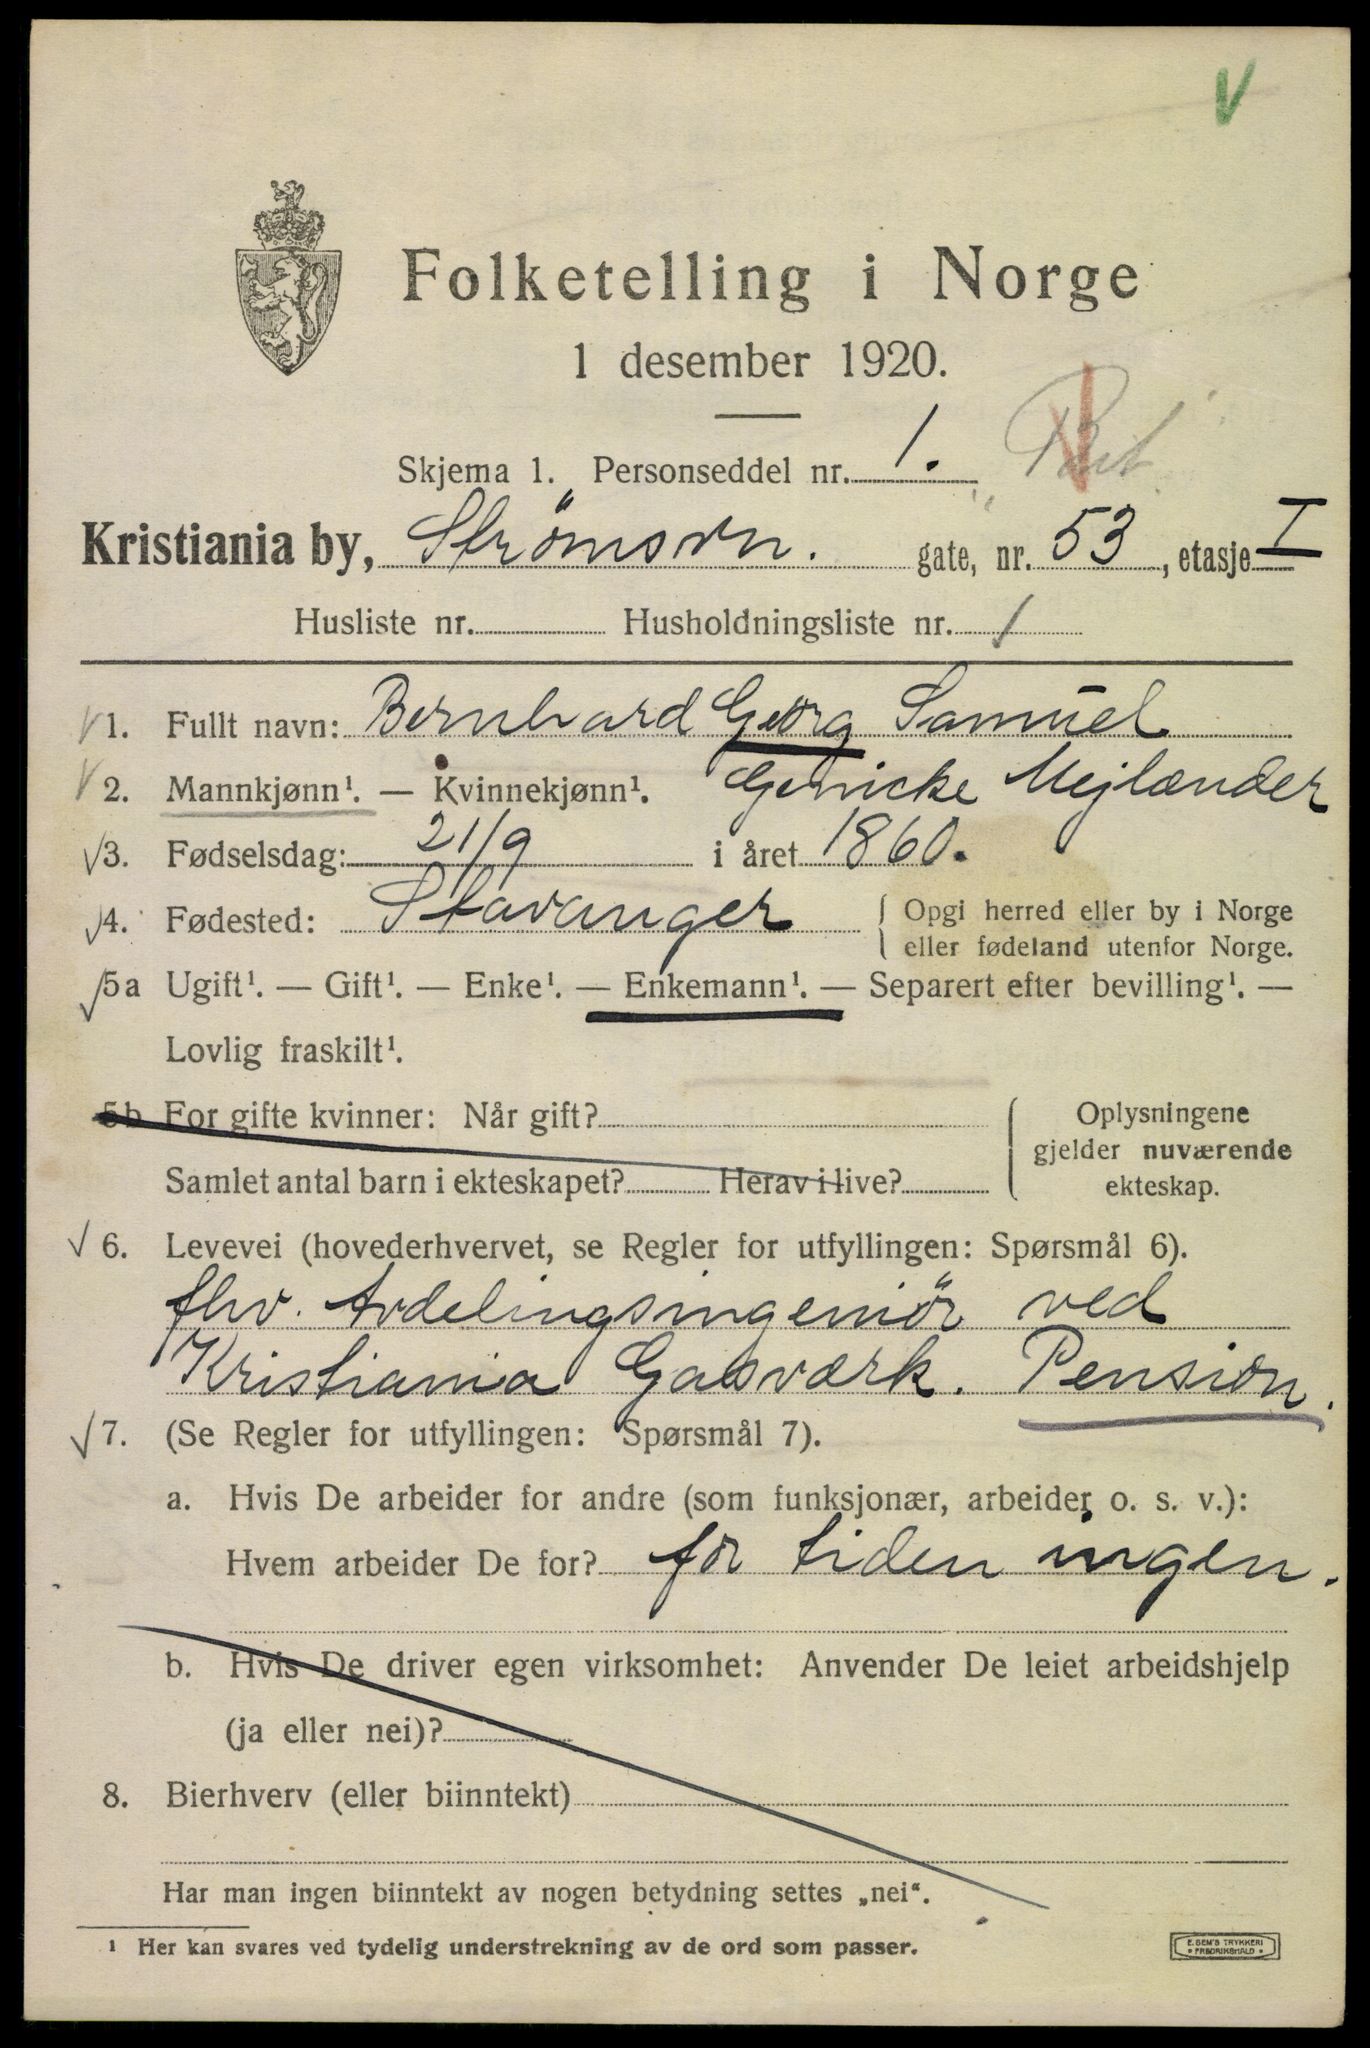 V
Folketelling i Norge
1 desember 1920.
Skjema 1. Personseddel nr. 1.
Kristiania by, Strömsvn. gate, nr. 53, etasje I
Husliste nr. Husholdningsliste nr. 1
1. Fullt navn: Bernhard Georg Samuel
2. Mannkjønn¹. — Kvinnekjønn¹. Gericke Mejlænder
3. Fødselsdag: 21/9 i året 1860.
4. Fødested: Stavanger { Opgi herred eller by i Norge
eller fødeland utenfor Norge.
5a Ugift¹. — Gift¹. — Enke¹. — Enkemann¹. — Separert efter bevilling¹. —
Lovlig fraskilt¹.
5b For gifte kvinner: Når gift? { Oplysningene
gjelder nuværende
Samlet antal barn i ekteskapet? Herav i live? ekteskap.
6. Levevei (hovederhvervet, se Regler for utfyllingen: Spørsmål 6).
fhv. Avdelingsingeniör ved
Kristiania Gasværk. Pension.
7. (Se Regler for utfyllingen: Spørsmål 7).
a. Hvis De arbeider for andre (som funksjonær, arbeider o. s. v.):
Hvem arbeider De for? for tiden ingen.
b. Hvis De driver egen virksomhet: Anvender De leiet arbeidshjelp
(ja eller nei)?
8. Bierhverv (eller biinntekt)
Har man ingen biinntekt av nogen betydning settes „nei“.
¹ Her kan svares ved tydelig understrekning av de ord som passer.
E. SEM'S TRYKKERI
FREDRIKSHALD